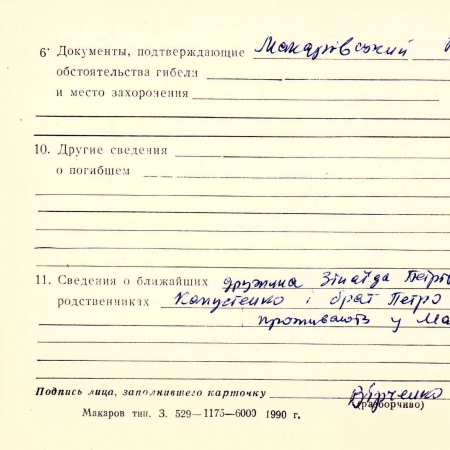 6. Документы, подтверждающие Макарівський
обстоятельства гибели
и место захоронения
10. Другие сведения
о погибшем
11. Сведения о ближайших дружина Зінаїда Петрів
родственниках Капустенко і брат Петро
проживають у Ма
Подпись лица, заполнившего карточку Вірченко
(разборчиво)
Макаров тип. З. 529—1175—6000 1990 г.